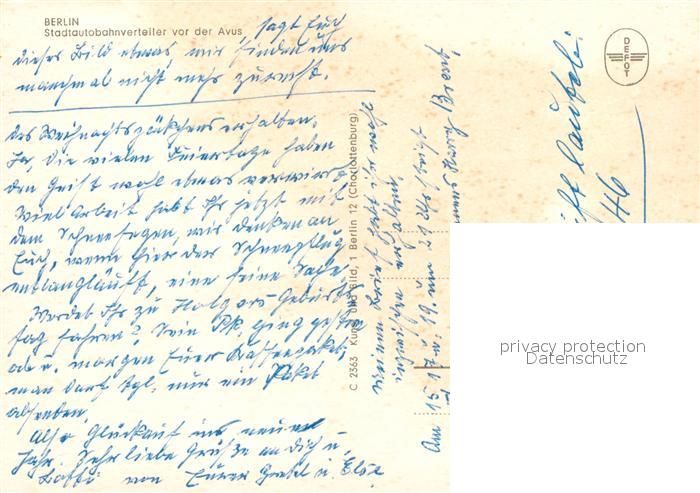 BERLIN
Stadtautobahnverteiler vor der Avus, sagt Euch
dieses Bild etwas, wir finden uns
manchmal nicht mehr zurecht.
das Weihnachtspäckchen erhalten.
Ja, die vielen Feiertage haben
den Geist wohl etwas verwirrt.
Viel Arbeit habt Ihr jetzt mit
dem Schneefegen, wir denken an
Euch, wenn hier der Schneepflug
entlangläuft, eine feine Sache
Werdet Ihr zu Holgers Geburts
tag fahren? Sein Pk. ging gestern
ab u. morgen Euer Kaffeepaket,
man darf tgl. nur ein Paket
absenden.
Also Glückauf ins neue
Jahr. Sehr liebe Grüße an dich u.
von Eurer Gretel u. Else
C 2363 Kunst und Bild, 1 Berlin 12 (Charlottenburg)
meinen Brief habt Ihr
inzwischen erhalten.
Am 15. 17. u. 19. um
DEFOT
46
privacy protection
Datenschutz